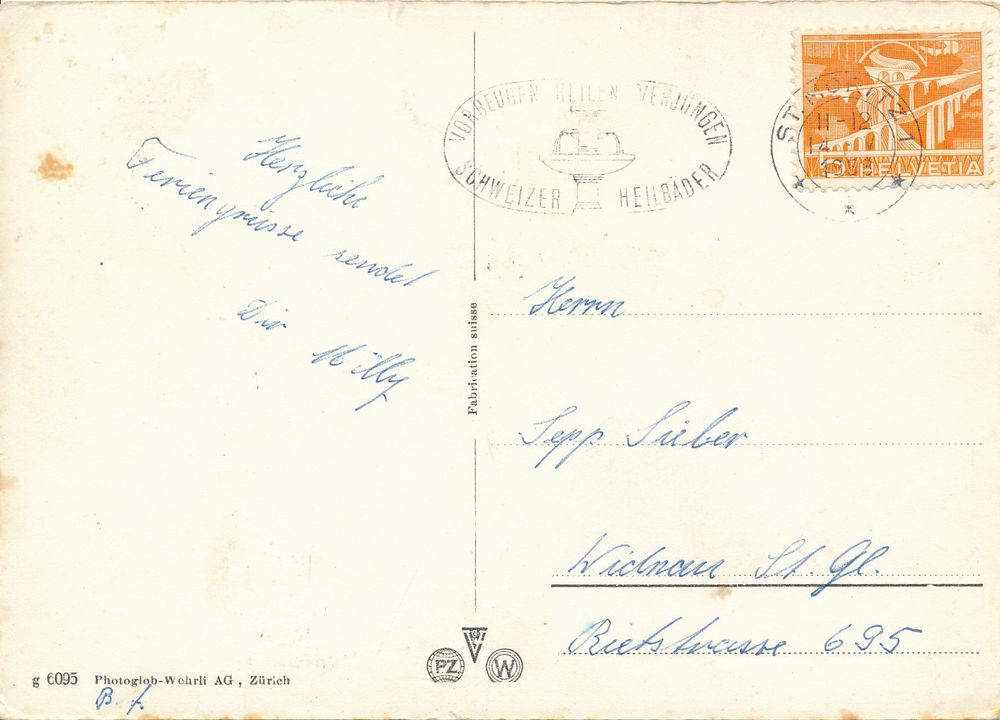 Herzliche
Feriengrüsse sendet
Dir Milly
VORBEUGEN HEILEN VERJÜNGEN
SCHWEIZER HEILBÄDER
ST. MORITZ 1
11-12
10 HELVETIA
Fabrication suisse
Herrn
Sepp Sieber
Widnau St. Gl.
Rietstrasse 695
PZ
W
g 6095 Photoglob-Wehrli AG, Zürich
B. f.